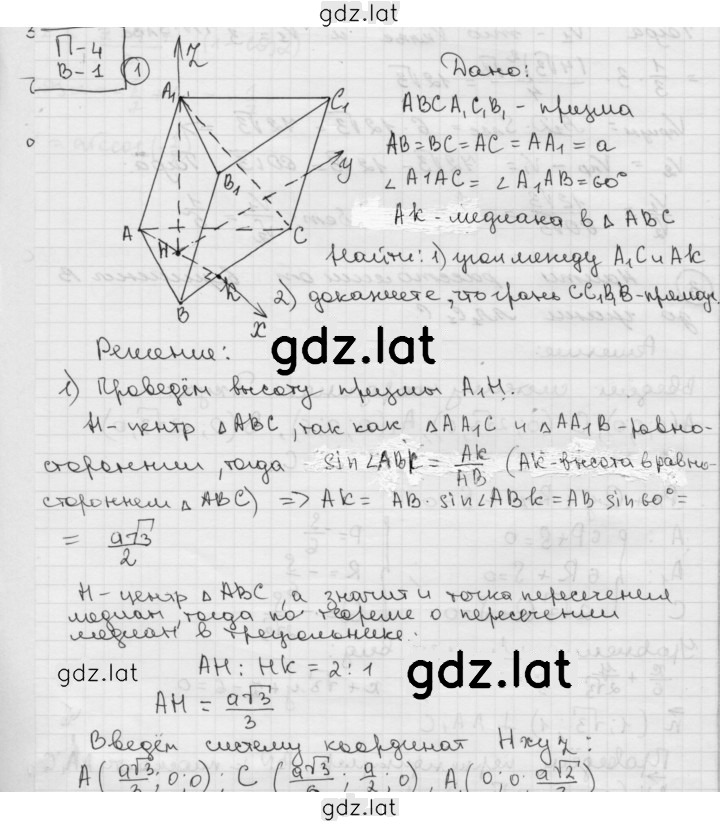 gdz.lat
П-4
В-1
1
Z
A₁
C₁
B₁
y
A
C
H
K
B
x
Дано:
ABCA₁C₁B₁ - призма
AB=BC=AC=AA₁=a
∠A1AC=∠A₁AB=60°
AK-медиана в △ABC
Найти: 1) угол между A₁C и AK
2) докажете, что грань CC₁B₁B-прямоуг.
gdz.lat
Решение:
1) Проведём высоту призмы A₁H.
H-центр △ABC, так как △AA₁C и △AA₁B-равно-
стороннии, тогда sin∠ABK = AK/AB (AK-высота в равно-
стороннем △ABC) => AK = AB·sin∠ABK = AB sin60° =
= a√3/2
H-центр △ABC, а значит и точка пересечения
медиан, тогда по теореме о пересечении
медиан в треугольнике:
gdz.lat
AH : HK = 2:1
gdz.lat
AH = a√3/3
Введём систему координат Hxyz:
A(a√3/3;0;0); C(a√3/6; a/2; 0), A₁(0; 0; a√2/3)
gdz.lat